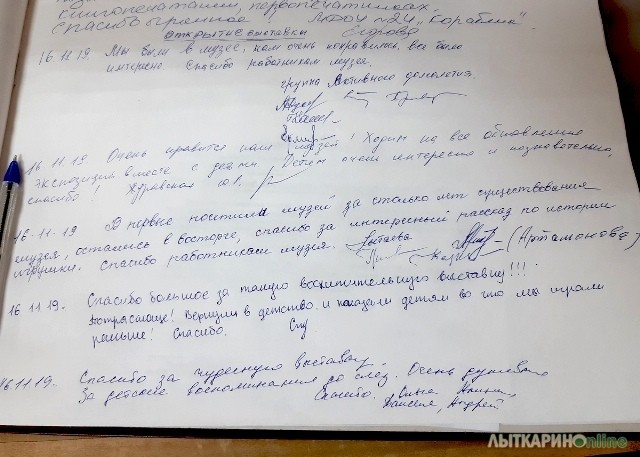 книгопечатании, первопечатниках.
Спасибо огромное! МДОУ №24 "Кораблик"
Открытие выставки
16.11.19. Мы были в музее, нам очень понравилось, все было
интересно. Спасибо работникам музея.
группа Активного долголетия.
16.11.19 Очень нравится наш музей! Ходим на все обновления
экспозиции вместе с детьми. Детям очень интересно и познавательно,
спасибо! Журавская
16.11.19 В первые посетила музей за столько лет существования
музея, остались в восторге, спасибо за интересный рассказ по истории
игрушки. Спасибо работникам музея. (Артамонова)
16.11.19. Спасибо большое за такую восхитительную выставку!!!
Потрясающе! Вернули в детство и показали детям во что мы играли
раньше! Спасибо.
16.11.19. Спасибо за чудесную выставку.
За детские воспоминания до слез. Очень душевно
Спасибо. Андрей
ЛЫТКАРИНОonline